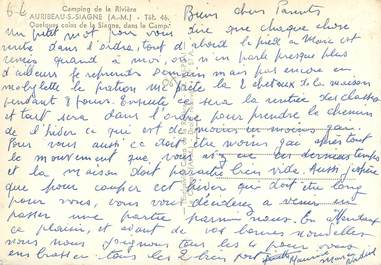 6-6
Camping de la Rivière
AURIBEAU-S-SIAGNE (A.-M.) - Tél. 46.
Quelques coins de la Siagne, dans le Camp
Biens chers Parents
un petit mot pour vous dire que chaque chose
rentre dans l'ordre, tout d'abord le pied à Marie est
remis quand à moi, on n'en parle presque plus
d'ailleurs je reprends demain mais pas encore en
mobylette le patron me prête la 2 chevaux de la maison
pendant 8 jours. Ensuite ce sera la rentrée des classes
et tout sera dans l'ordre pour prendre le chemin
de l'hiver ce qui est de moins en moins gai.
Pour vous aussi ce doit être moins gai après tout
le mouvement que vous ces derniers temps
et la maison doit paraître bien vide. Aussi j'espère
que pour couper cet hiver qui doit être long
pour vous, vous vous déciderez a venir en
passer une partie parmi nous. En attendant
ce plaisir, et avant de vos bonnes nouvelles
nous nous joignons tous les 4 pour vous
embrasser tous les 2 bien fort
Maurice Marie